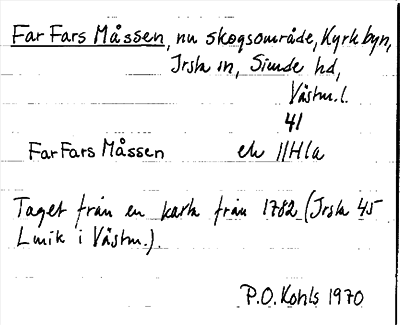 Far Fars Måssen, nu skogsområde, Kyrkbyn,
Irsta sn, Siende hd,
Västm. l.
41
Far Fars Måssen ek 11H1a
Taget från en karta från 1782 (Irsta 45
Lmik i Västm.).
P.O. Kohls 1970